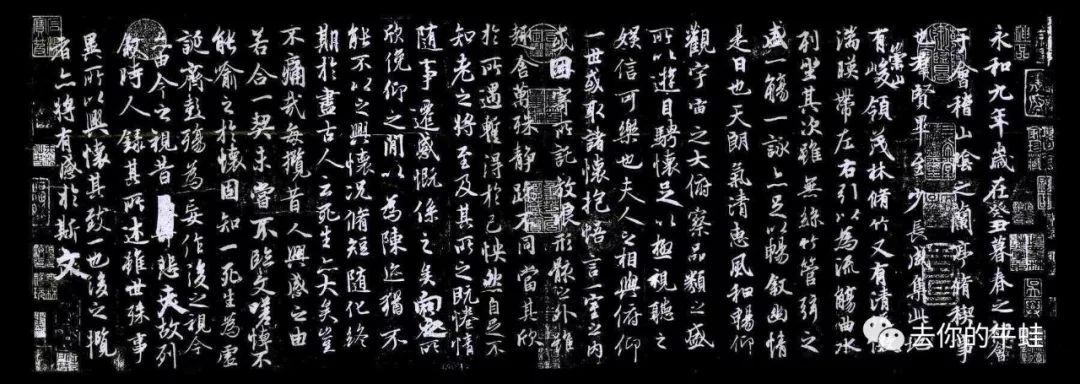 永和九年歲在癸丑暮春之初會
于會稽山陰之蘭亭脩稧事
也群賢畢至少長咸集此
有崇山峻領茂林脩竹又有清
湍暎帶左右引以為流觴曲水
列坐其次雖無絲竹管弦之
盛一觴一詠亦足以暢敘幽情
是日也天朗氣清惠風和暢仰
觀宇宙之大俯察品類之盛
所以遊目騁懷足以極視聽之
娛信可樂也夫人之相與俯仰
一世或取諸懷抱悟言一室之內
或因寄所託放浪形骸之外雖
趣舍萬殊靜躁不同當其欣
於所遇蹔得於己怏然自足不
知老之將至及其所之既惓情
隨事遷感慨係之矣向之所
欣俛仰之閒以為陳迹猶不
能不以之興懷況脩短隨化終
期於盡古人云死生亦大矣豈
不痛哉每攬昔人興感之由
若合一契未嘗不臨文嗟悼不
能喻之於懷固知一死生為虛
誕齊彭殤為妄作後之視今
亦由今之視昔悲夫故列
敘時人錄其所述雖世殊事
異所以興懷其致一也後之攬
者亦將有感於斯文
去你的牛蛙